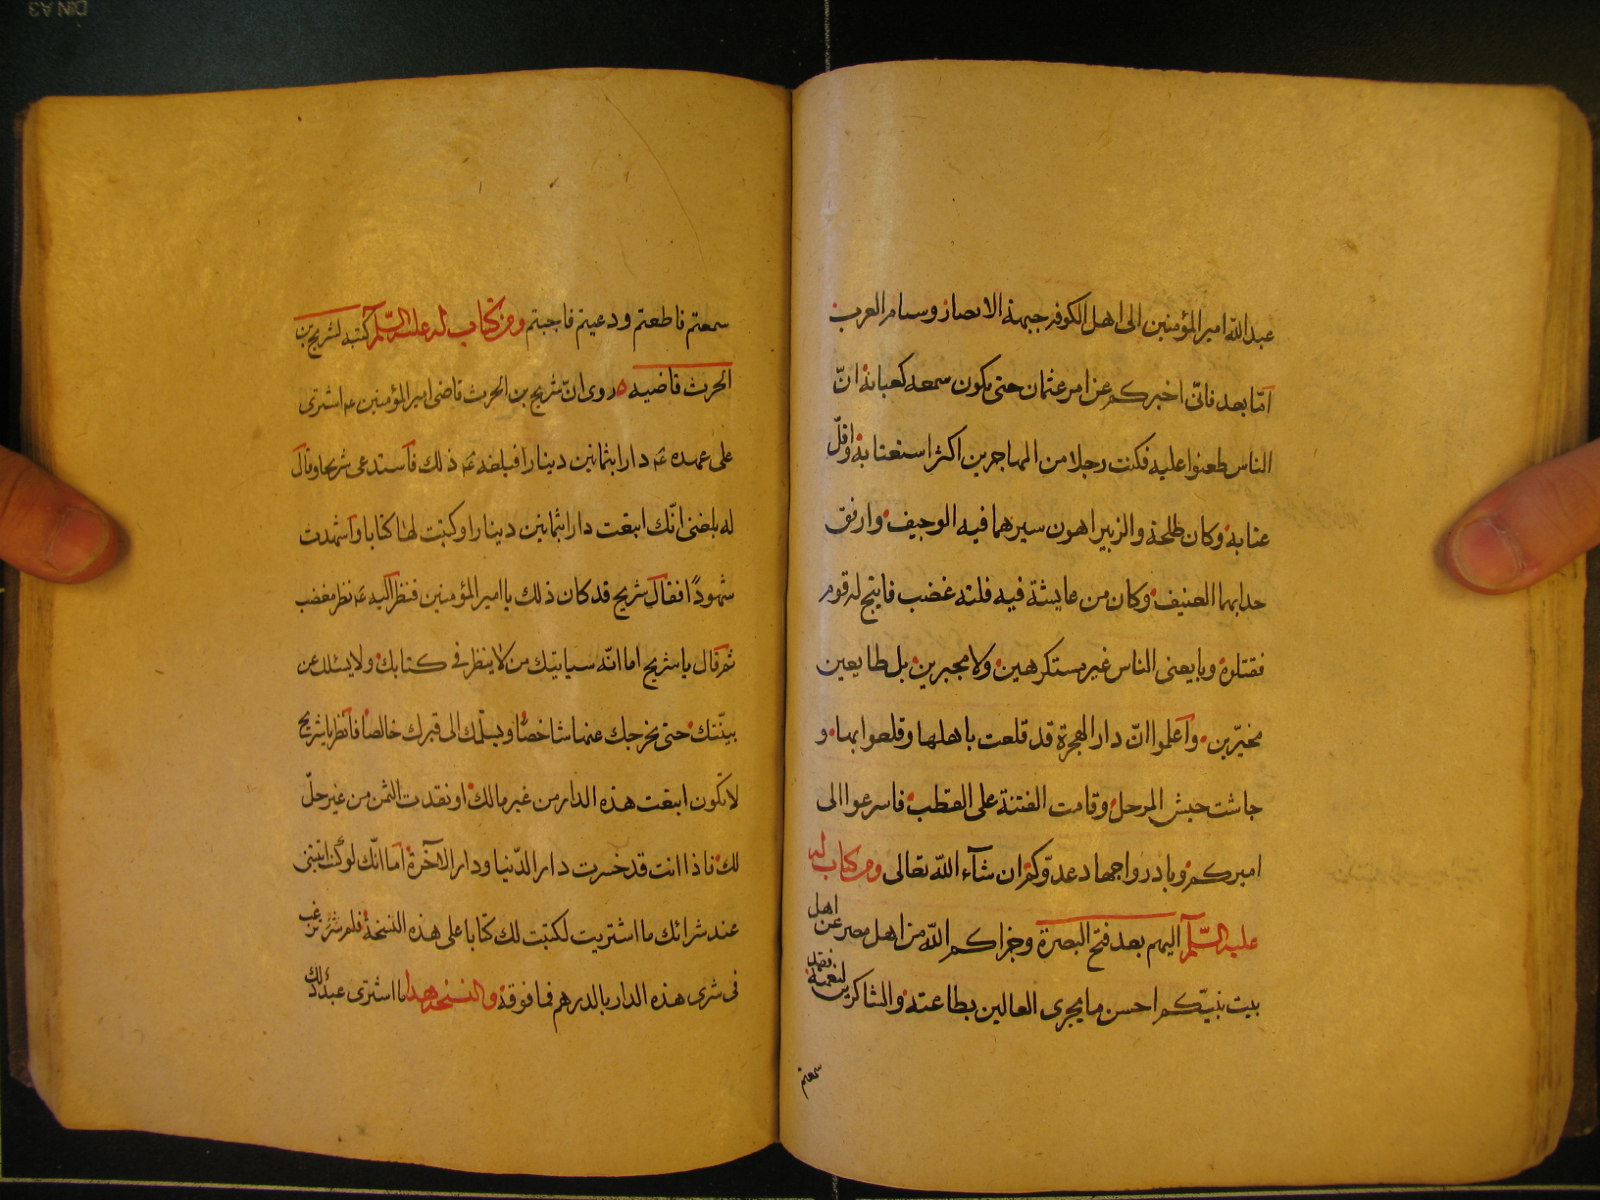 عبدالله امیر المؤمنین الی اهل الکوفه جبهة الانصار وسنام العرب
امّا بعد فانّی اخبرکم عن امر عثمان حتی یکون سمعه کعیانه انّ
الناس طعنوا علیه فکنت رجلا من المهاجرین اکثر استعتابه واقلّ
عتابه وکان طلحة والزبیر اهون سیرهما فیه الوجیف وارفق
حدابهما العنیف وکان من عایشة فیه فلته غضب فاتیح له قوم
فقتلوه وبایعنی الناس غیر مستکرهین ولا مجبرین بل طایعین
مخیّرین واعلموا انّ دار الهجرة قد قلعت باهلها وقلعوا بها و
جاشت جیش المرجل وقامت الفتنة علی القطب فاسرعوا الی
امیرکم وبادروا جهاد عدوّکم ان شآء الله تعالی ومن کتاب له
علیه السّلم الیهم بعد فتح البصرة وجزاکم الله من اهل مصر عن اهل
بیت نبیّکم احسن ما یجزی العالین بطاعته والشاکرین لنعمته فقد
سمعتم
سمعتم فاطعتم ودعیتم فاجبتم ومن کتاب له علیه السّلم کتبه لشریح بن
الحرث قاضیه روی انّ شریح بن الحرث قاضی امیر المؤمنین عه اشتری
علی عهده عه دارا بثمانین دینارا فبلغه عه ذلک فاستدعی شریحا وقال
له بلغنی انّک ابتعت دارا بثمانین دینارا وکتبت لها کتابا واشهدت
شهودًا فقال شریح قد کان ذلک یا امیر المؤمنین فنظر الیه عه نظر مغضب
ثم قال یا شریح اما انّه سیاتیک من لا ینظر فی کتابک ولا یسئلک عن
بیّنتک حتی یخرجک عنها شاخصًا ویسلّمک الی قبرک خالصًا فانظر یا شریح
لا تکون ابتعت هذه الدار من غیر مالک او نقدت الثمن من غیر حلّ
لک فاذا انت قد خسرت دار الدّنیا ودار الآخرة اما انّک لو کنت اتیتنی
عند شرائک ما اشتریت لکتبت لک کتابا علی هذه النسخة فلم ترغب
فی شری هذه الدار بالدرهم فما فوقه والنسخه هذا ما اشتری عبد ذلک